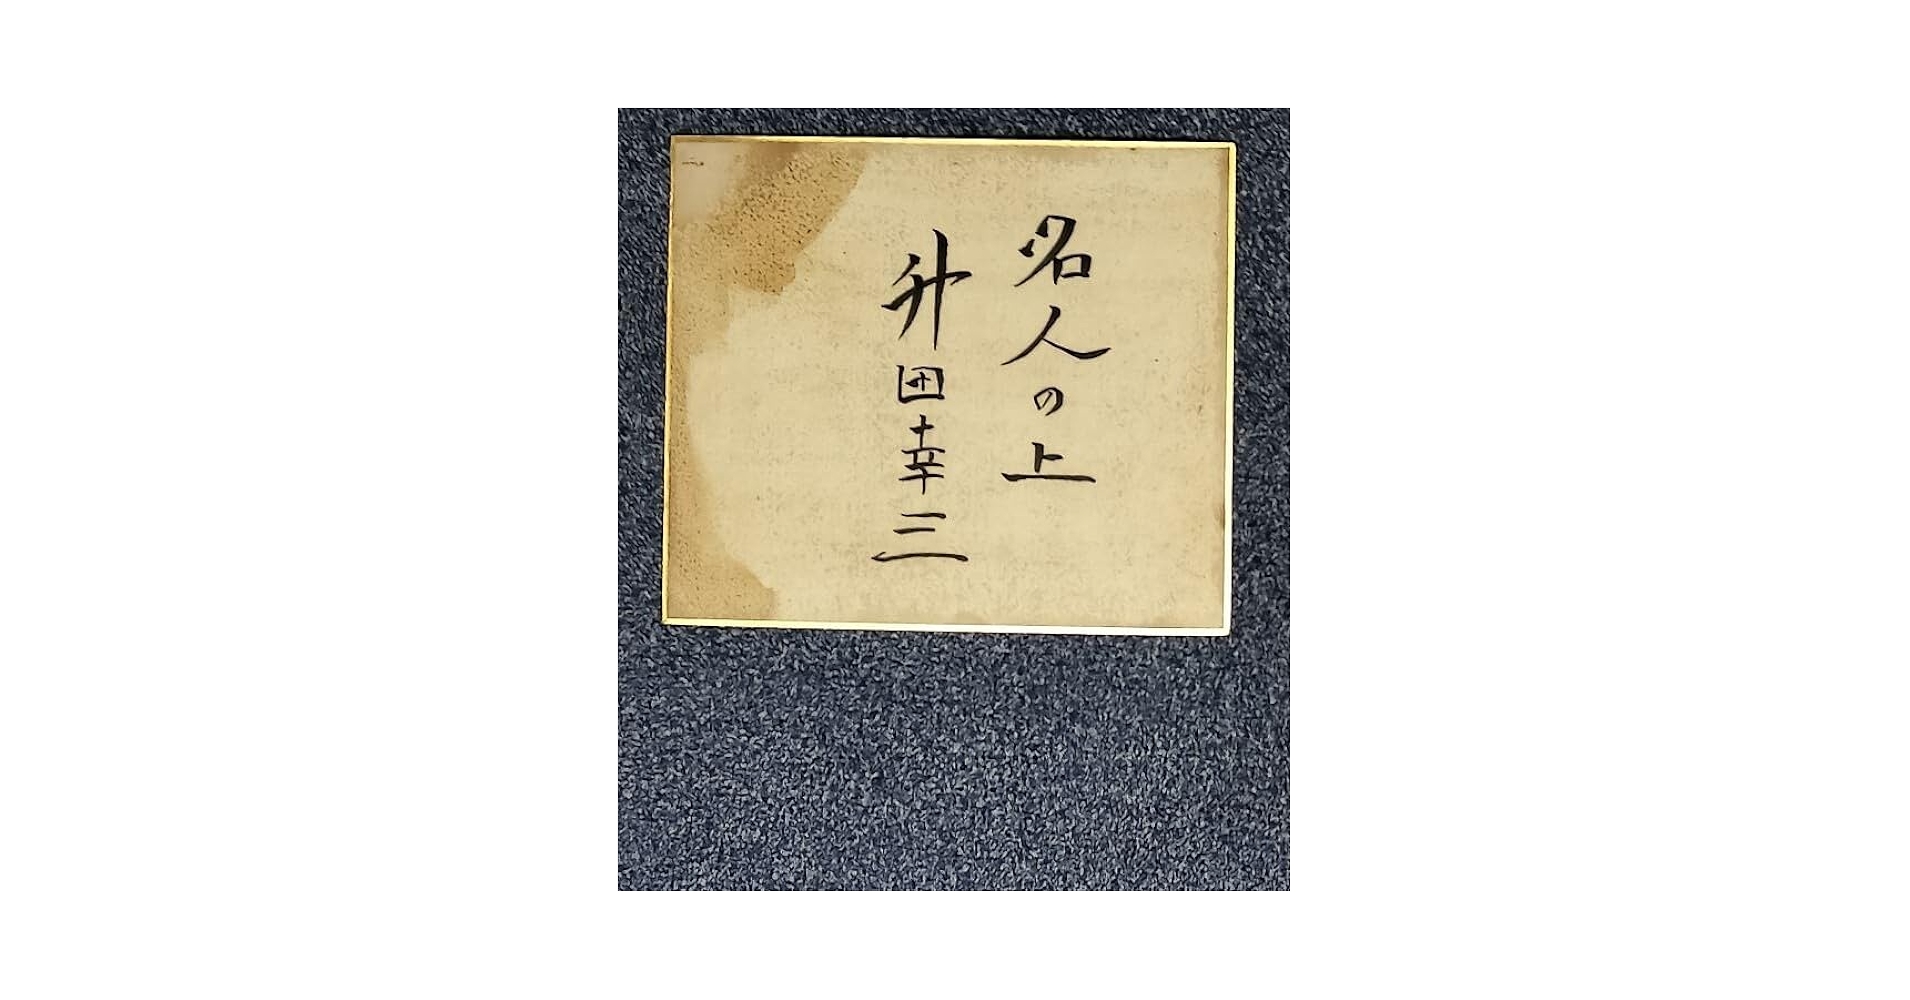 名人の上
升田幸三